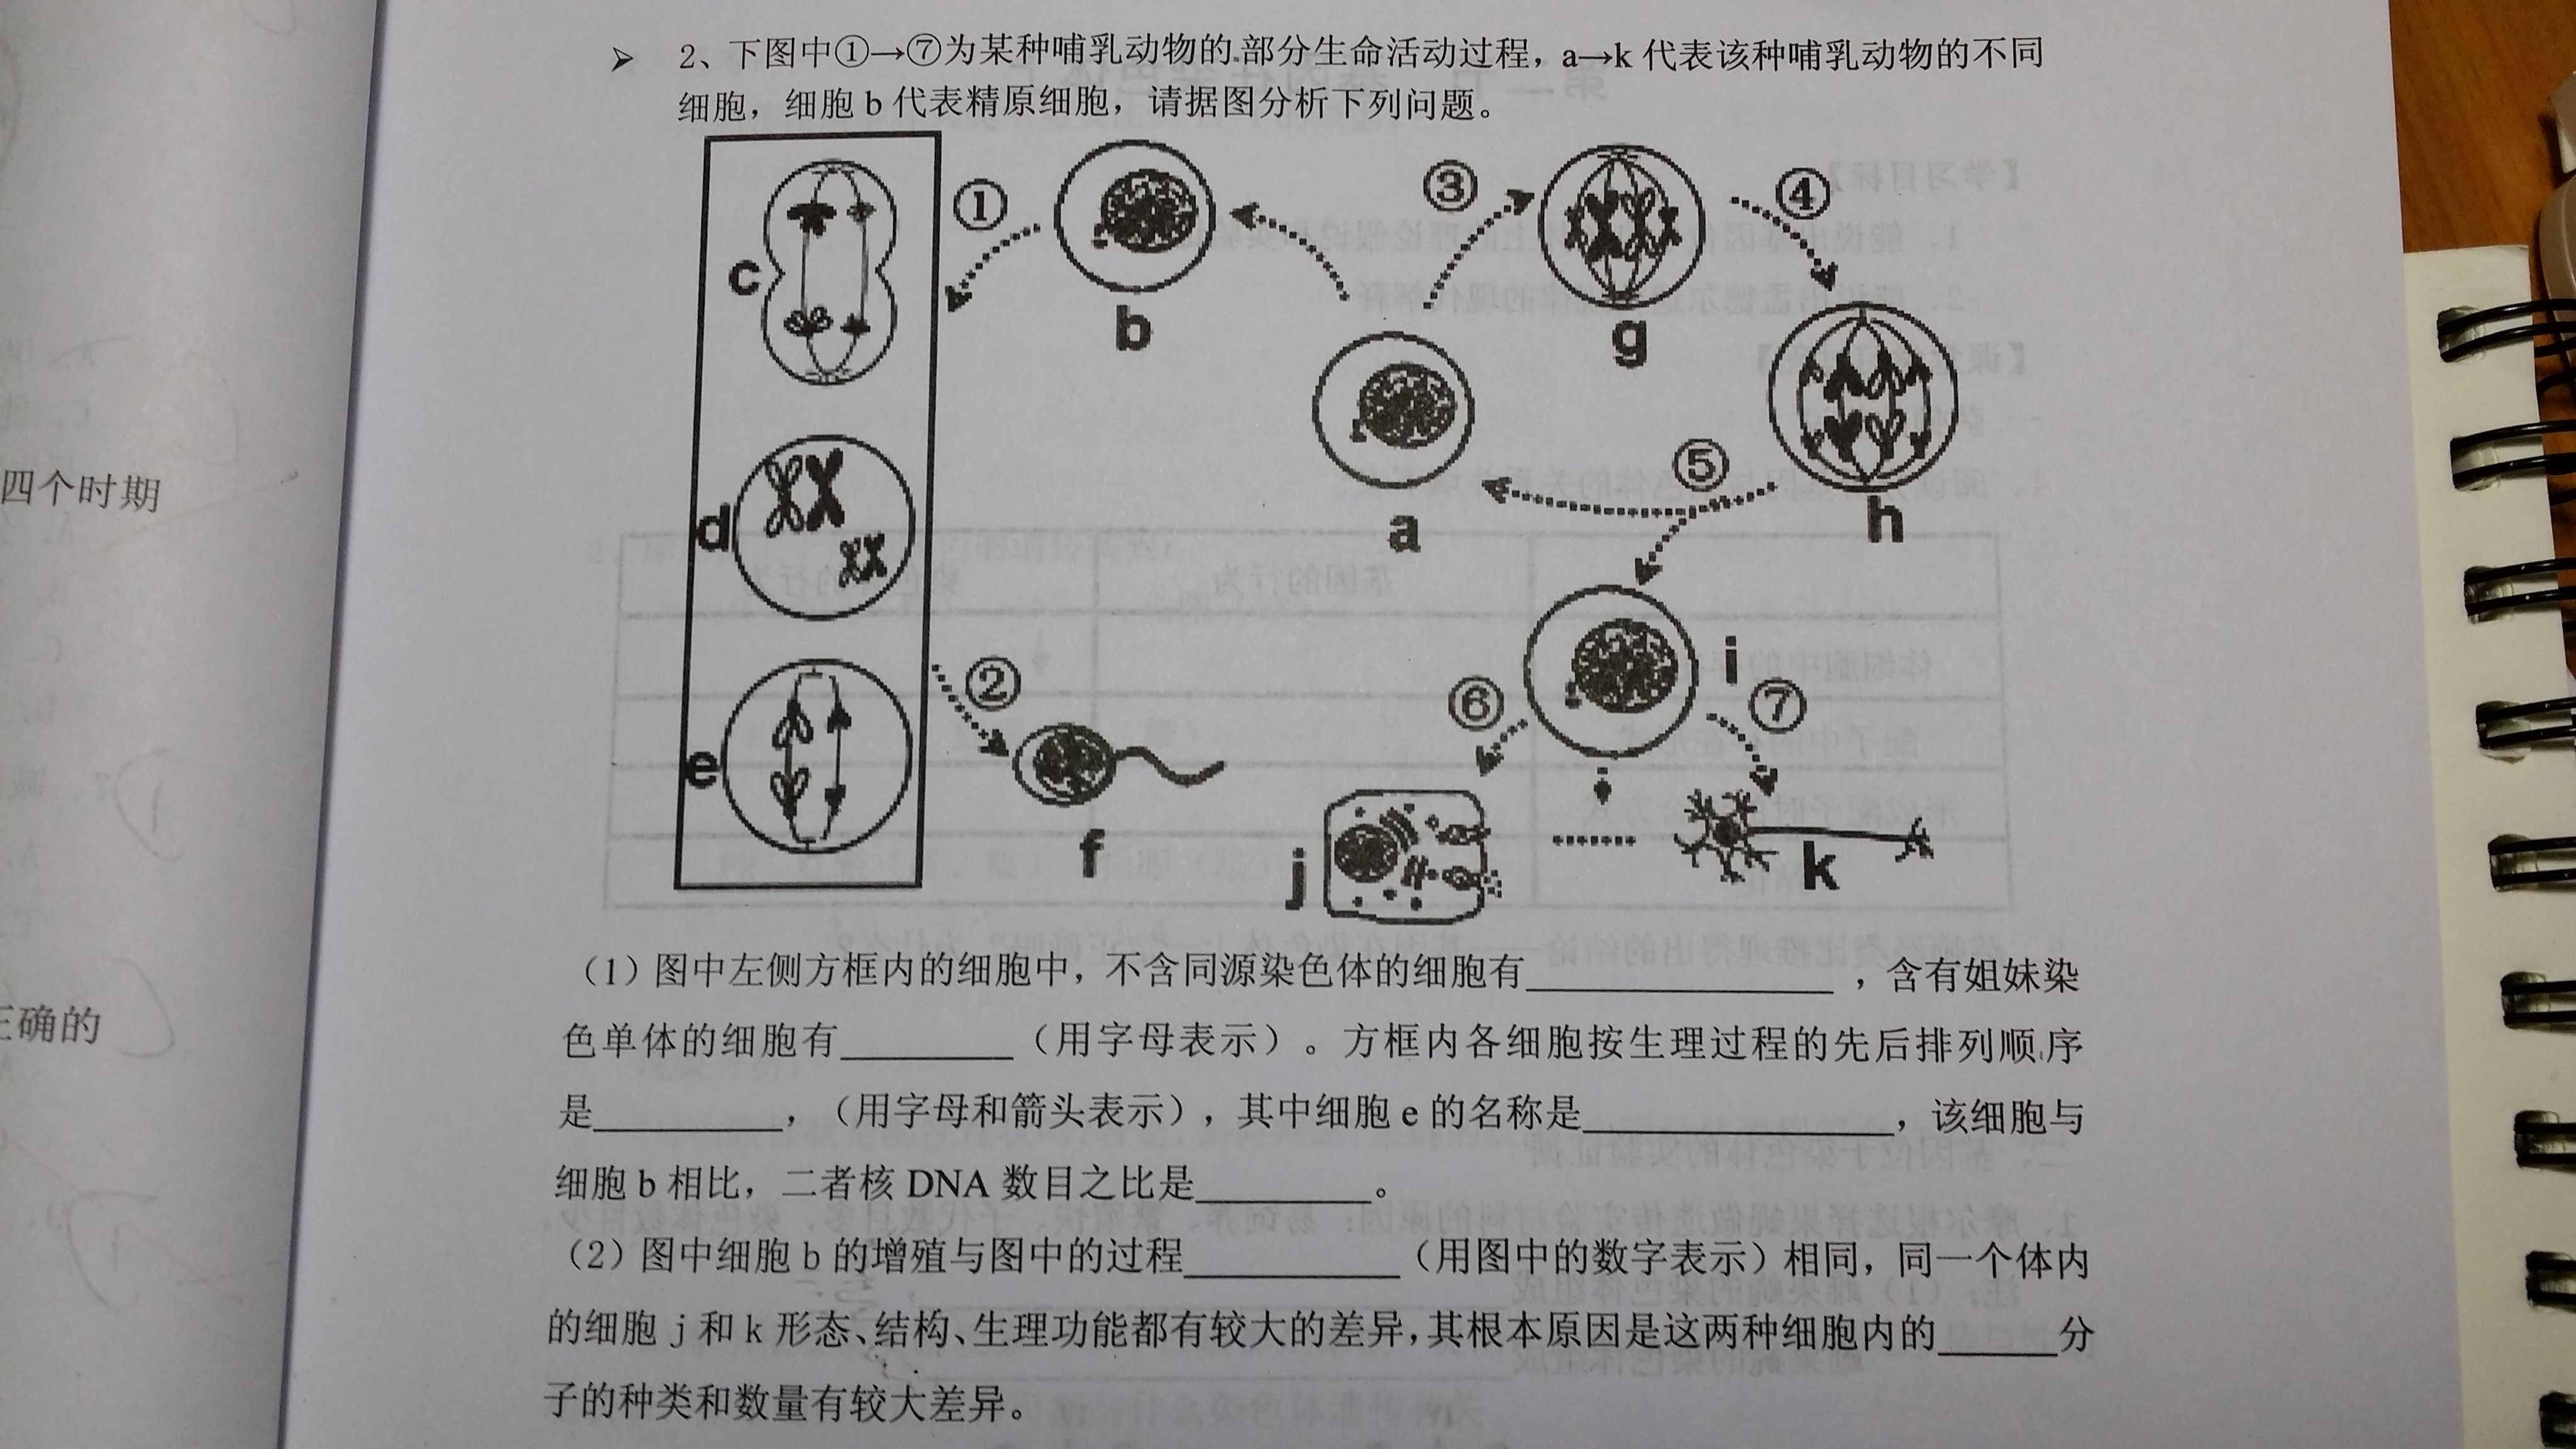 2、下图中①→⑦为某种哺乳动物的部分生命活动过程，a→k 代表该种哺乳动物的不同
细胞，细胞 b 代表精原细胞，请据图分析下列问题。
① b ③ g ④
c
a ⑤ h
d
i
e ② f ⑥ ⑦
j k
四个时期
正确的
（1）图中左侧方框内的细胞中，不含同源染色体的细胞有________________，含有姐妹染
色单体的细胞有_________（用字母表示）。方框内各细胞按生理过程的先后排列顺序
是__________，（用字母和箭头表示），其中细胞 e 的名称是________________，该细胞与
细胞 b 相比，二者核 DNA 数目之比是_________。
（2）图中细胞 b 的增殖与图中的过程___________（用图中的数字表示）相同，同一个体内
的细胞 j 和 k 形态、结构、生理功能都有较大的差异，其根本原因是这两种细胞内的______分
子的种类和数量有较大差异。